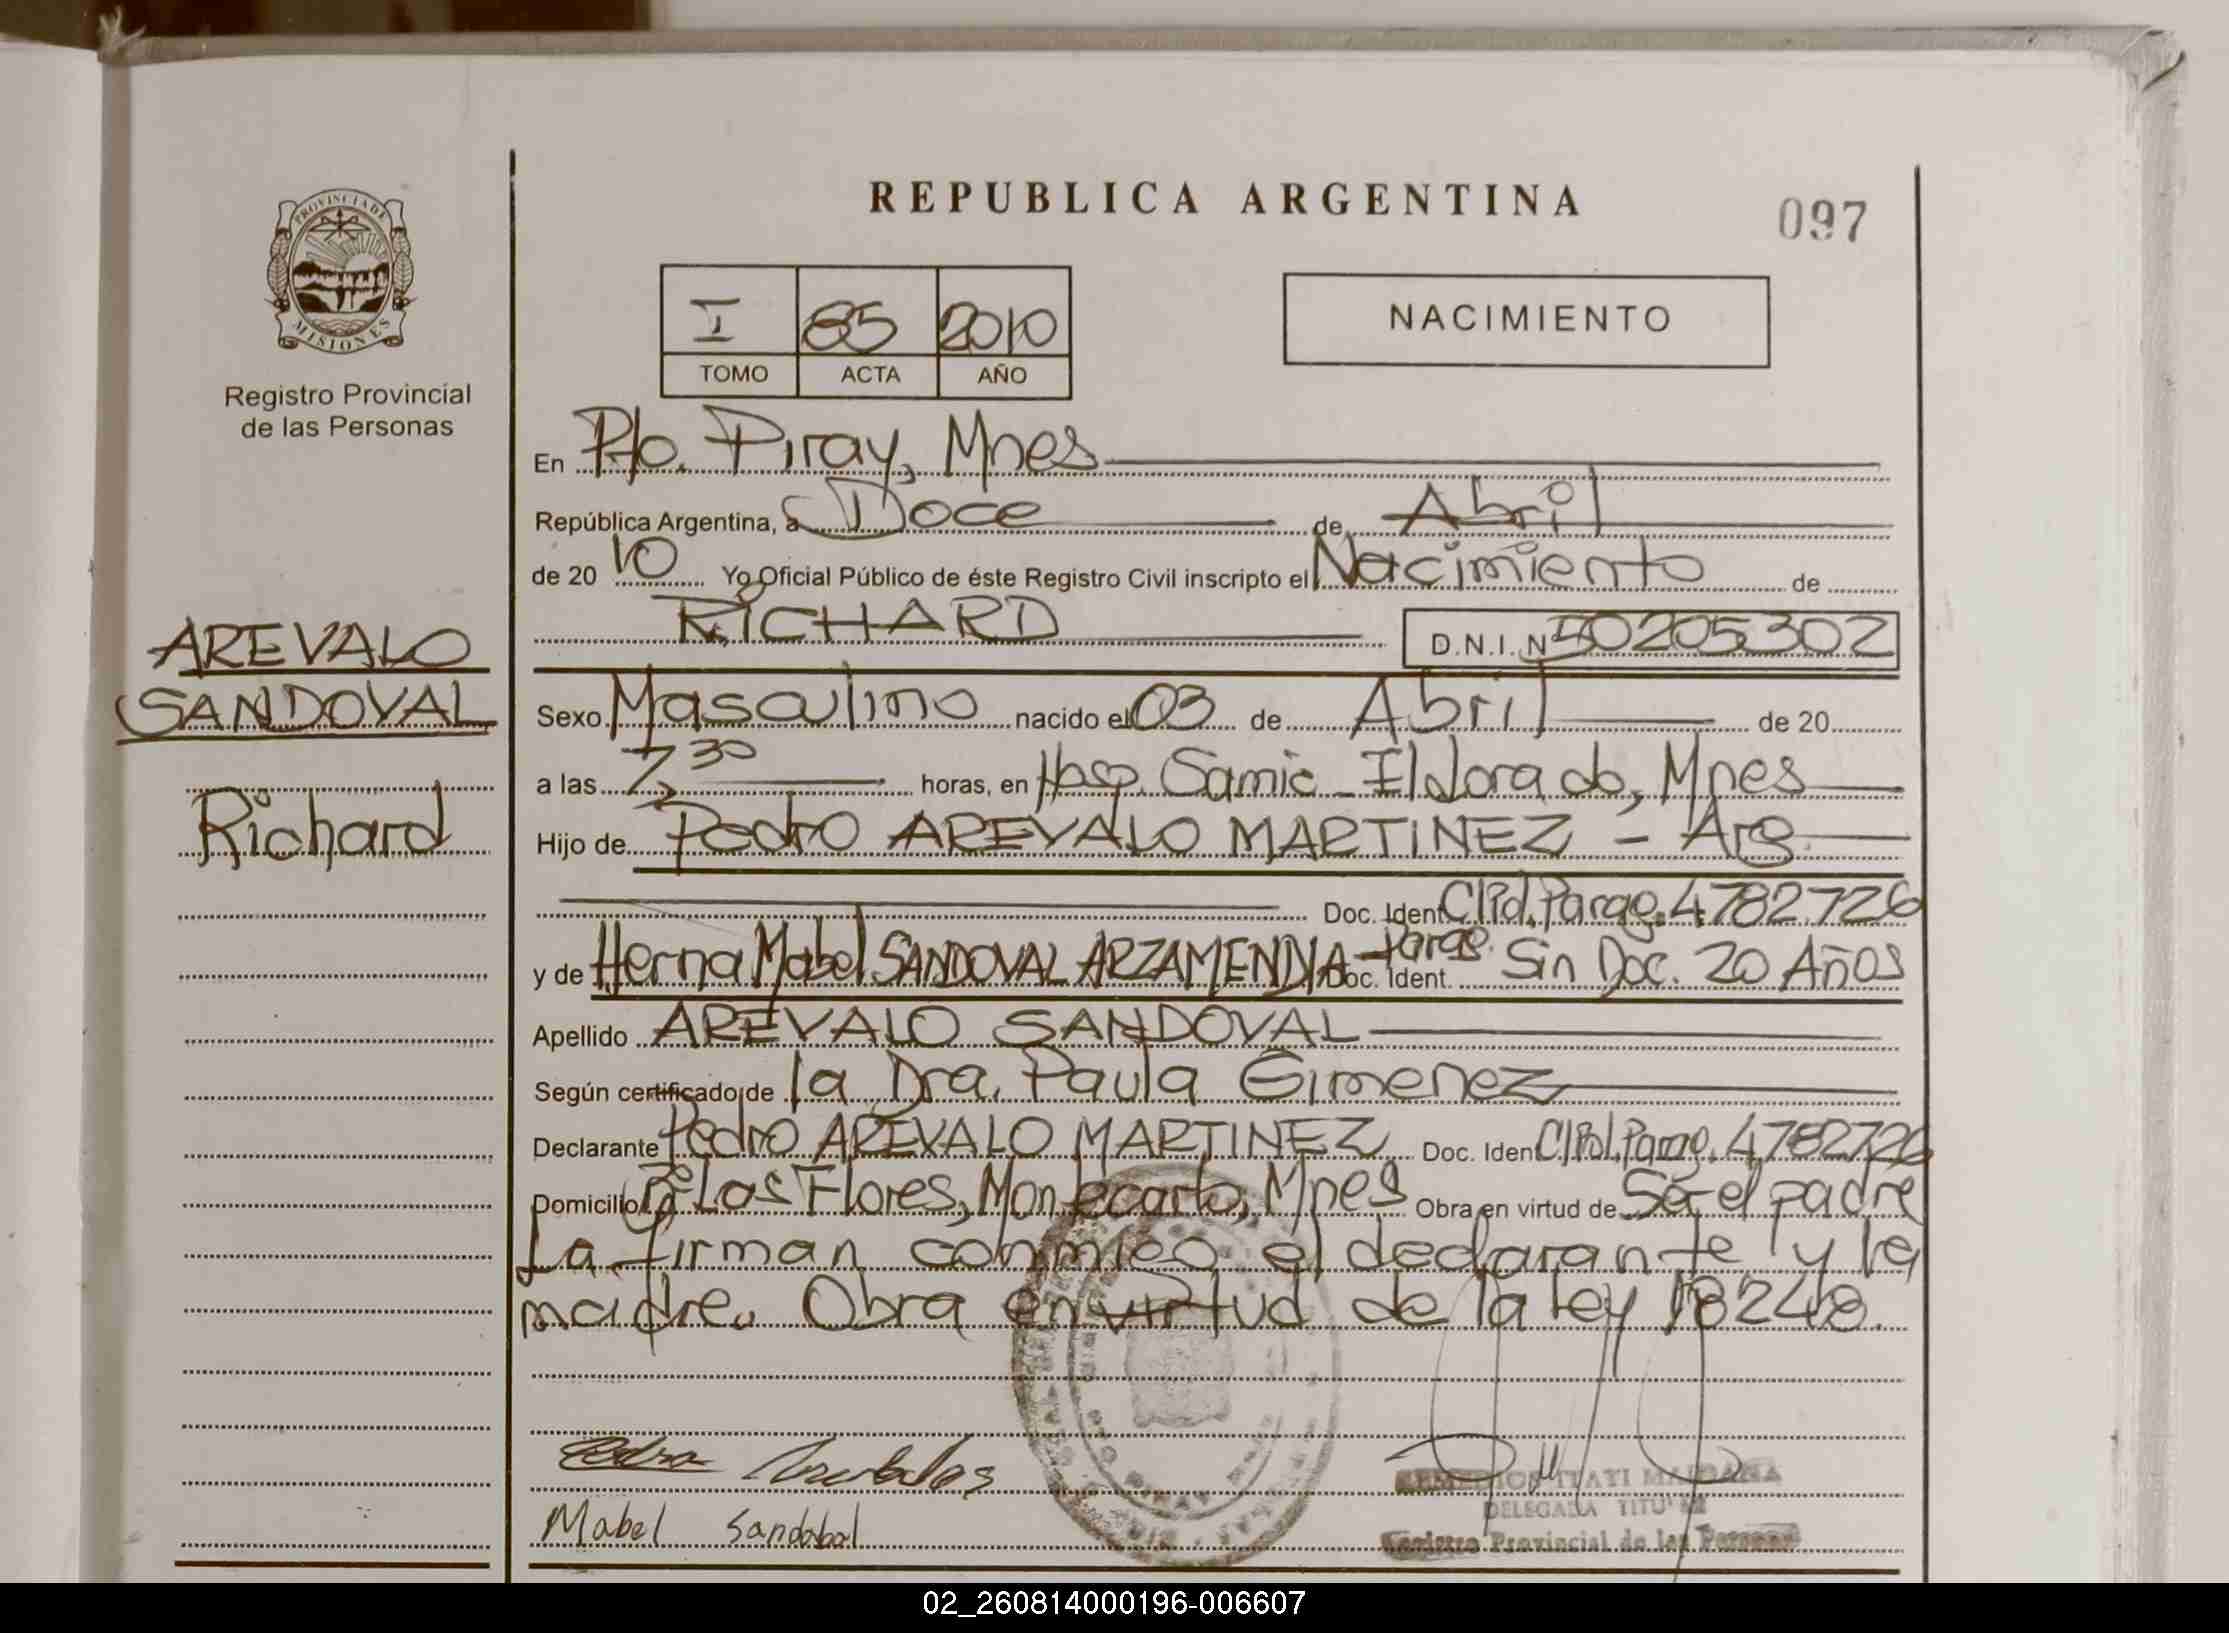 REPUBLICA ARGENTINA
097
PROVINCIA DE MISIONES
Registro Provincial
de las Personas
I 85 2010
TOMO ACTA AÑO
NACIMIENTO
En Pto. Piray, Mnes
República Argentina, a Doce de Abril
de 20 10 Yo Oficial Público de éste Registro Civil inscripto el Nacimiento de
RICHARD D.N.I. Nº 50205302
AREVALO
SANDOVAL
Richard
Sexo Masculino nacido el 03 de Abril de 20
a las 7 30 horas, en Hosp. Samic - Eldorado, Mnes
Hijo de Pedro AREVALO MARTINEZ - Arg.
Doc. Ident. C.I.Pol. Parag. 4782726
y de Herna Mabel SANDOVAL ARZAMENDIA - Parag. Doc. Ident. Sin Doc. 20 Años
Apellido AREVALO SANDOVAL
Según certificado de la Dra. Paula Gimenez
Declarante Pedro AREVALO MARTINEZ Doc. Ident. C.I.Pol. Parag. 4782726
Domicilio Bº Las Flores, Montecarlo, Mnes Obra en virtud de Ser el padre
La firman conmigo el declarante y la
madre. Obra en virtud de la ley 18248.
Mabel Sandobal
REMEDIOS ITATI MAIDANA
DELEGADA TITULAR
Registro Provincial de las Personas
02_260814000196-006607